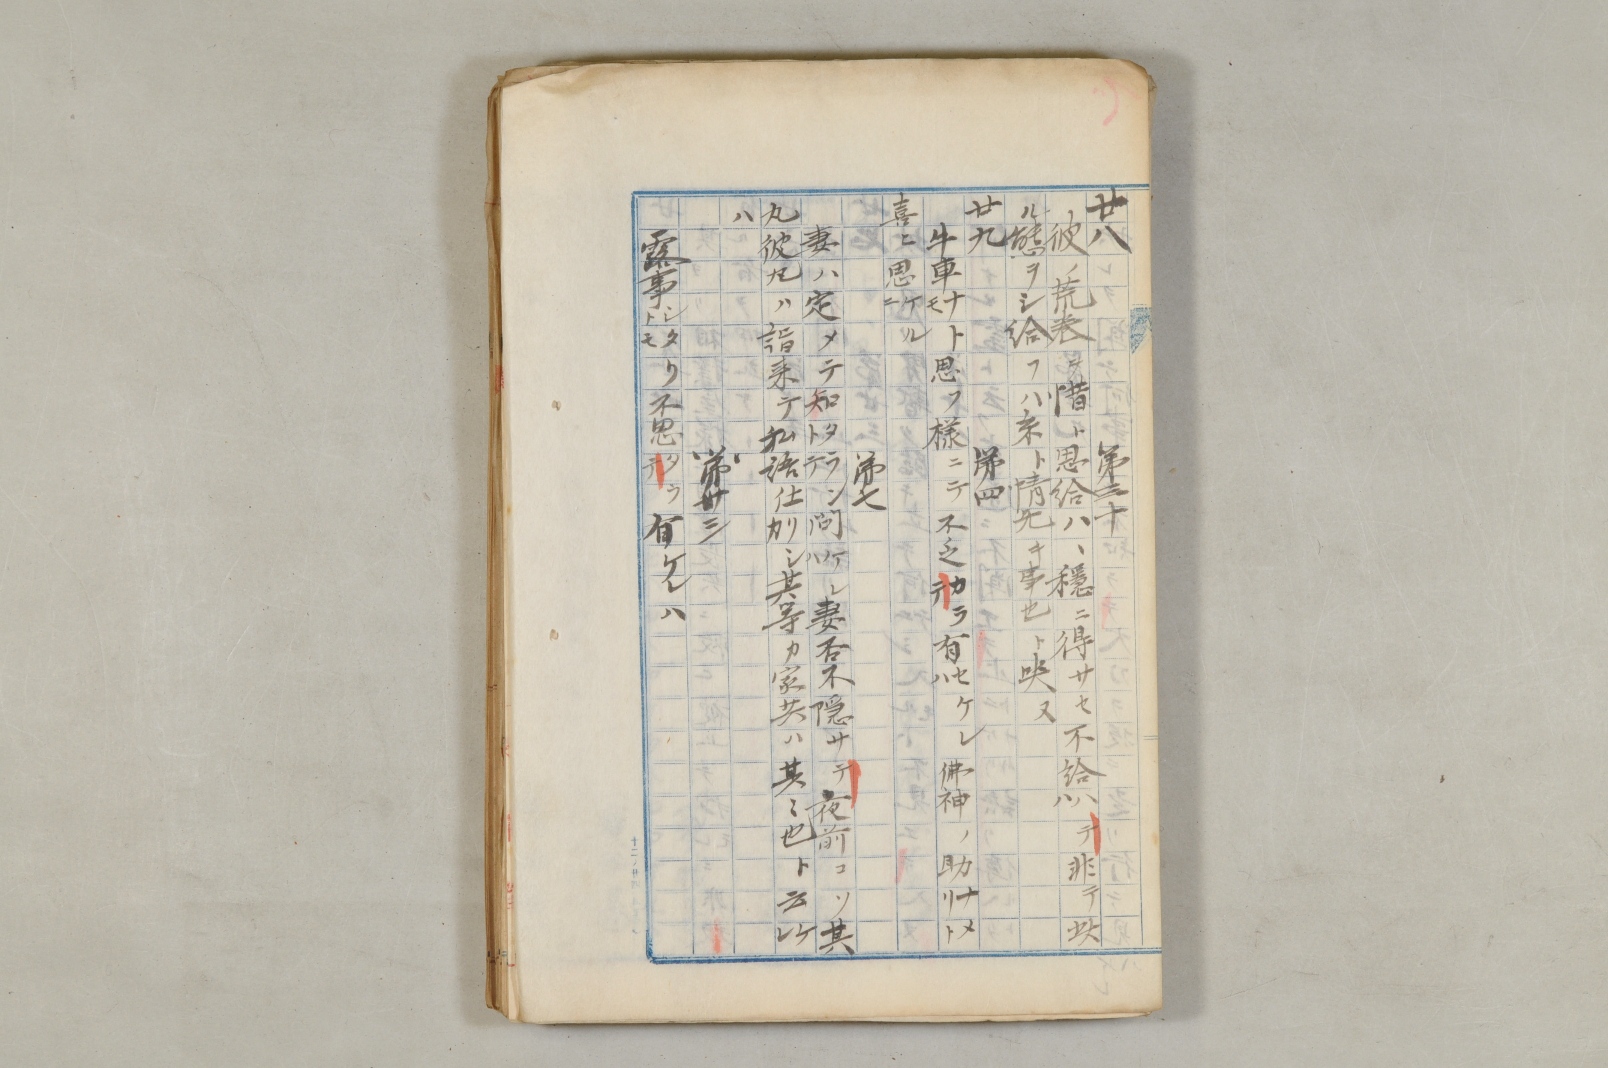 廿八　第三十
彼ノ荒巻ヲ惜ト思給ハヽ穏ニ得サセ不給ハハテ非テ此
ル態ヲシ給フハ糸ト情无キ事也ト咲ヌ
廿九　第四
牛車ナトモ思フ様ニテ不乏テカラ有セケレハ佛神ノ助ナメリト
喜ニ思ニケル
第七
妻ハ定メテ知タラントテ問ケレハ妻否不隠サテ夜前コソ其
丸彼丸ハ詣来テ私語仕カリシ其等カ家共ハ其ミ也ト云ケレ
ハ
第廿三
露事シタリトモ不思タラテ有ケレハ